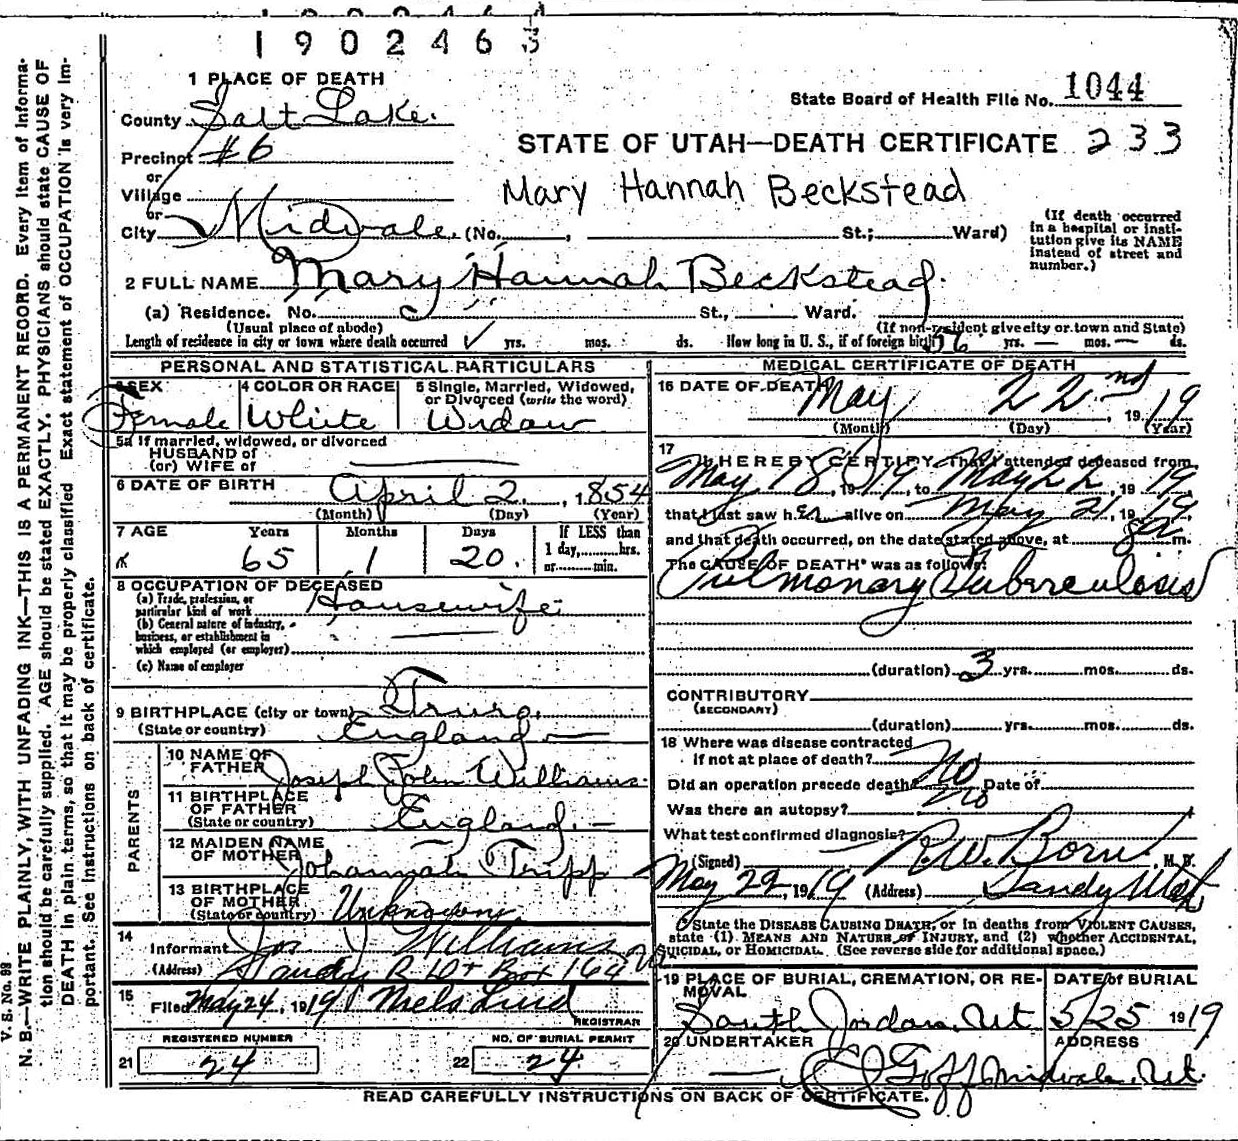 1902463
1 PLACE OF DEATH
State Board of Health File No. 1044
County Salt Lake.
STATE OF UTAH—DEATH CERTIFICATE 233
Precinct #6
or
Mary Hannah Beckstead
Village
or
City Midvale. (No. , St.; Ward)
(If death occurred in a hospital or insti-
tution give its NAME instead of street and number.)
2 FULL NAME Mary Hannah Beckstead.
(a) Residence. No. St., Ward.
(Usual place of abode) (If non-resident give city or town and State)
Length of residence in city or town where death occurred yrs. mos. ds. How long in U. S., if of foreign birth? 56 yrs. — mos. — ds.
PERSONAL AND STATISTICAL PARTICULARS
3 SEX Female
4 COLOR OR RACE White
5 Single, Married, Widowed, or Divorced (write the word) Widow
5a If married, widowed, or divorced
HUSBAND of
(or) WIFE of
6 DATE OF BIRTH April 2, 1854
(Month) (Day) (Year)
7 AGE Years Months Days If LESS than
65 1 20. 1 day, hrs.
or min.
8 OCCUPATION OF DECEASED
(a) Trade, profession, or
particular kind of work Housewife
(b) General nature of industry,
business, or establishment in
which employed (or employer)
(c) Name of employer
9 BIRTHPLACE (city or town) Truro.
(State or country) England —
PARENTS
10 NAME OF FATHER Joseph John Williams.
11 BIRTHPLACE OF FATHER (State or country) England. —
12 MAIDEN NAME OF MOTHER Johannah Tripp
13 BIRTHPLACE OF MOTHER (State or country) Unknown.
14 Informant Jos J Williams
(Address) Sandy R D + Box 164
15 Filed May 24, 1919 Niels Lind
REGISTRAR
REGISTERED NUMBER
21 24
NO. OF BURIAL PERMIT
22 24
MEDICAL CERTIFICATE OF DEATH
16 DATE OF DEATH May 22nd 1919
(Month) (Day) (Year)
17 I HEREBY CERTIFY, That I attended deceased from
May 18, 1919, to May 22, 1919
that I last saw her alive on May 21, 1919,
and that death occurred, on the date stated above, at m.
The CAUSE OF DEATH* was as follows:
Pulmonary Tuberculosis
(duration) 3 yrs. mos. ds.
CONTRIBUTORY
(SECONDARY)
(duration) yrs. mos. ds.
18 Where was disease contracted
if not at place of death?
Did an operation precede death? No Date of
Was there an autopsy? no
What test confirmed diagnosis?
(Signed) R.W. Born, M. D.
May 22, 1919 (Address) Sandy Utah
*State the DISEASE CAUSING DEATH, or in deaths from VIOLENT CAUSES,
state (1) MEANS AND NATURE OF INJURY, and (2) whether ACCIDENTAL,
SUICIDAL, or HOMICIDAL. (See reverse side for additional space.)
19 PLACE OF BURIAL, CREMATION, OR RE-
MOVAL
South Jordan, Ut
DATE of BURIAL
5/25 1919
20 UNDERTAKER ADDRESS
Goff Midvale, Ut.
READ CAREFULLY INSTRUCTIONS ON BACK OF CERTIFICATE.
V. S. No. 98
N. B.—WRITE PLAINLY, WITH UNFADING INK—THIS IS A PERMANENT RECORD. Every item of informa-
tion should be carefully supplied. AGE should be stated EXACTLY. PHYSICIANS should state CAUSE OF
DEATH in plain terms, so that it may be properly classified. Exact statement of OCCUPATION is very im-
portant. See instructions on back of certificate.